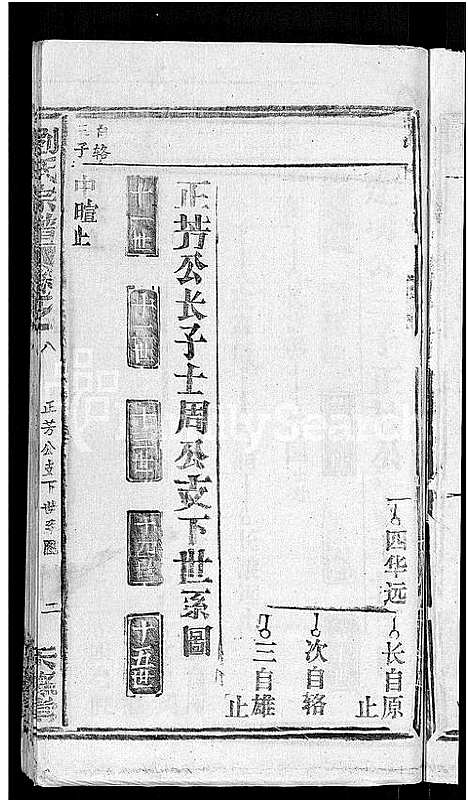 四华远
长自原
止
次自辂
三自雄
止
正芳公长子士周公支下世系圖
十一世
十二世
十三世
十四世
十五世
自辂
三子
中暄止
八
正芳公支下世系圖
二